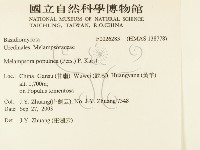 國立自然科學博物館
NATIONAL MUSEUM OF NATURAL SCIENCE
TAICHUNG, TAIWAN, R.O.CHINA
Basidiomycota F0026283 (HMAS 138778)
Uredinales Melampsoraceae
Melampsora (Pers.) P. Karst
Loc. China Gansu (甘肅) Wuwei (武威) Huangyang (黃羊)
alt. 1700m,
on Populus tomentosa
Col. J.Y. Zhuang No. J.Y. Zhuang
Date Sep 27, 2003
Det J.Y. Zhuang